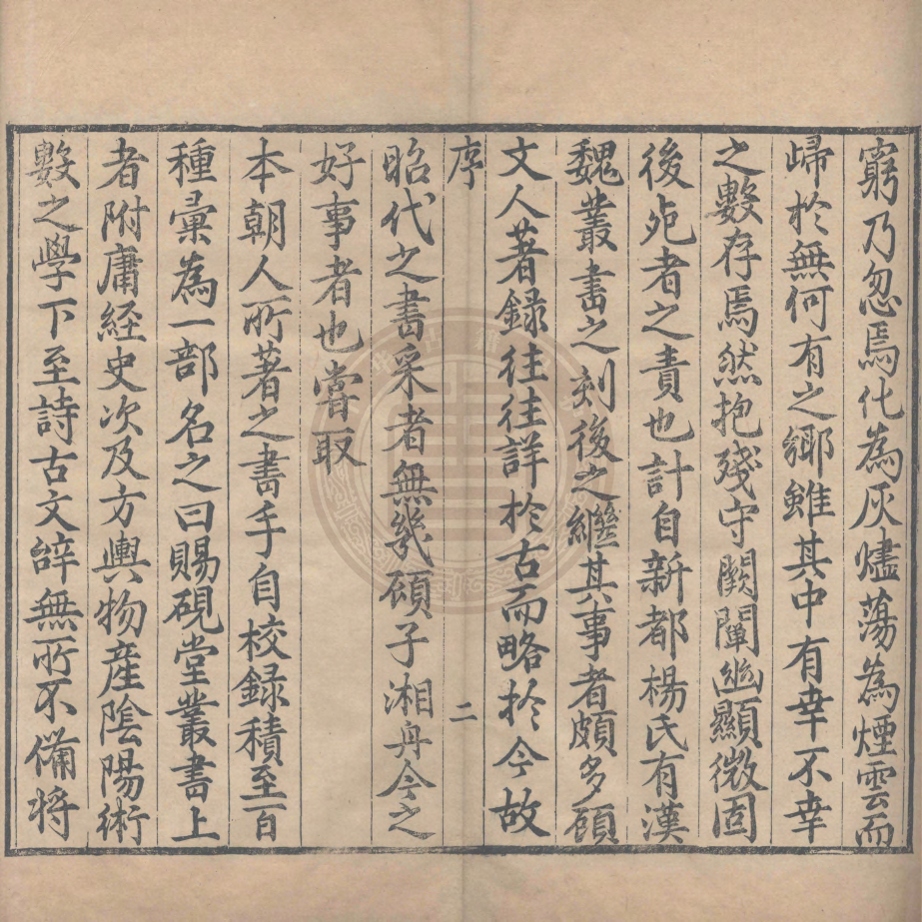 窮乃忽焉化為灰燼蕩為煙雲而
歸於無何有之鄉雖其中有幸不幸
之數存焉然抱殘守闕闡幽顯微固
後死者之責也計自新都楊氏有漢
魏叢書之刻後之繼其事者頗多顧
文人著録往往詳於古而略於今故
序
二
昭代之書采者無幾顧子湘舟今之
好事者也嘗取
本朝人所著之書手自校録積至一百
種彙為一部名之曰賜硯堂叢書上
者附庸經史次及方輿物産陰陽術
數之學下至詩古文辭無所不備將